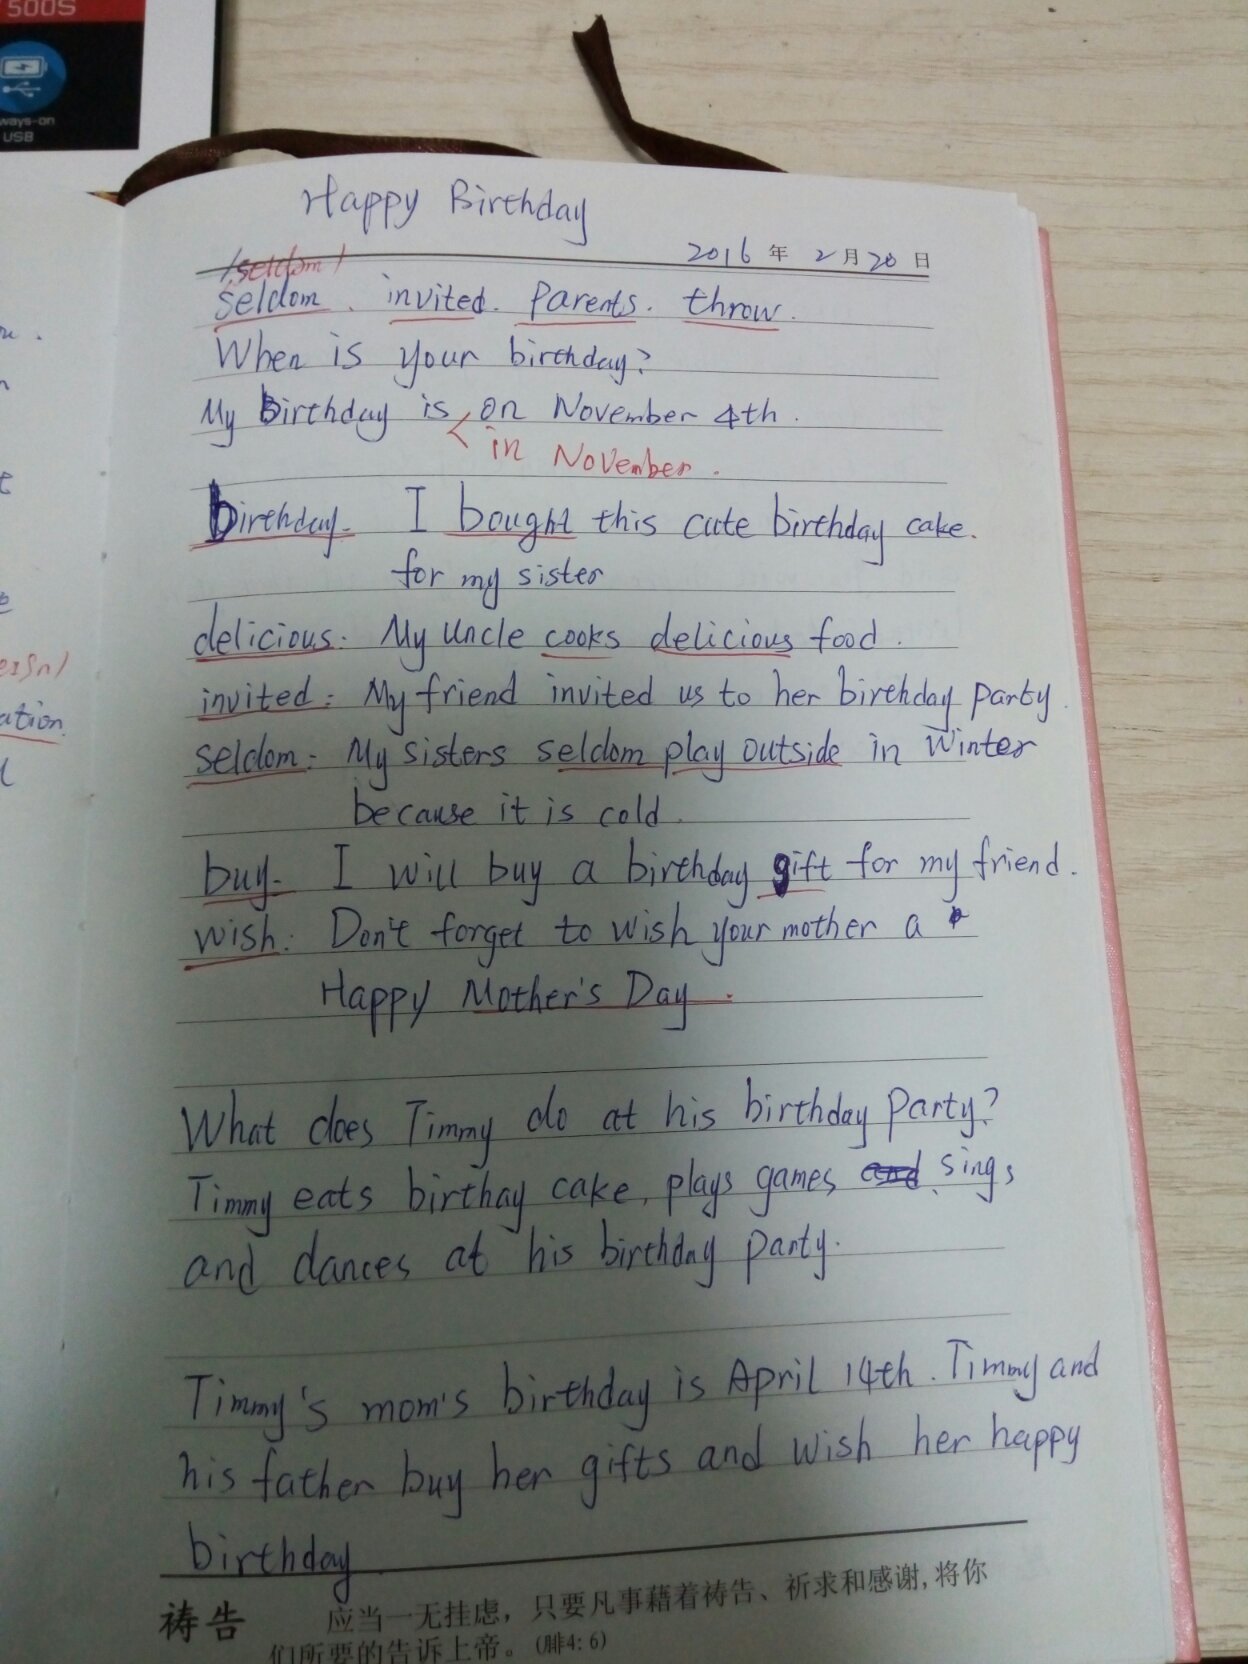 500S
ways-on
USB
Happy Birthday
2016 年 2月20日
/seldom/
seldom. invited. Parents. throw.
When is your birthday?
My Birthday is on November 4th.
in November.
birthday- I bought this cute birthday cake.
for my sister
delicious: My Uncle cooks delicious food.
invited: My friend invited us to her birthday party.
seldom: My sisters seldom play outside in Winter
because it is cold.
buy- I will buy a birthday gift for my friend.
wish: Don't forget to wish your mother a
Happy Mother's Day.
What does Timmy do at his birthday party?
Timmy eats birthay cake, plays games and, sings
and dances at his birthday party.
Timmy's mom's birthday is April 14th. Timmy and
his father buy her gifts and wish her happy
birthday
祷告 应当一无挂虑，只要凡事藉着祷告、祈求和感谢，将你
们所要的告诉上帝。(腓4:6)
ation